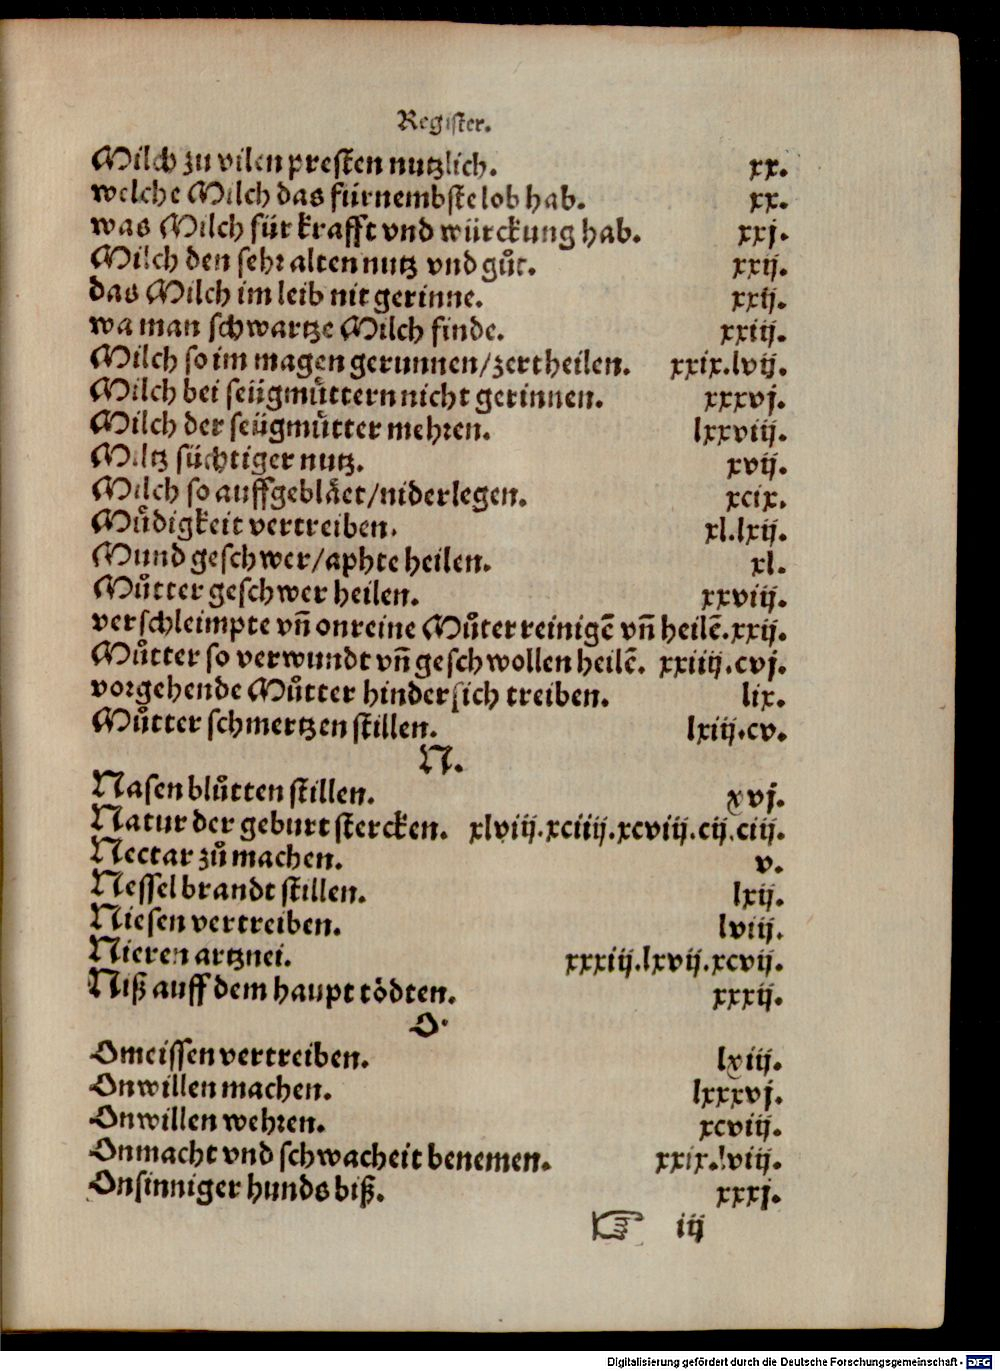 Register.
Milch zu vilen presten nutzlich. xx.
welche Milch das fürnembste lob hab. xx.
was Milch für krafft vnd würckung hab. xxj.
Milch den sehr alten nutz vnd gůt. xxij.
das Milch im leib nit gerinne. xxij.
wa man schwartze Milch finde. xxiij.
Milch so im magen gerunnen/zertheilen. xxix.lvij.
Milch bei seügmůttern nicht gerinnen. xxxvj.
Milch der seügmůtter mehren. lxxviij.
Miltz süchtiger nutz. xvij.
Milch so auffgeblået/niderlegen. xcix.
Můdigkeit vertreiben. xl.lxij.
Mund geschwer/aphte heilen. xl.
Můtter geschwer heilen. xxviij.
verschleimpte vñ onreine Můter reinigẽ vñ heilẽ.xxij.
Můtter so verwundt vñ geschwollen heilẽ. xxiiij.cvj.
vorgehende Můtter hindersich treiben. lix.
Můtter schmertzen stillen. lxiij.cv.
N.
Nasen blůtten stillen. xvj.
Natur der geburt stercken. xlviij.xciiij.xcviij.cij.ciij.
Nectar zů machen. v.
Nessel brandt stillen. lxij.
Niesen vertreiben. lviij.
Nieren artznei. xxxiij.lxvij.xcvij.
Niß auff dem haupt tödten. xxxij.
O.
Omeissen vertreiben. lxiij.
Onwillen machen. lxxxvj.
Onwillen wehren. xcviij.
Onmacht vnd schwacheit benemen. xxix.lviij.
Onsinniger hunds biß. xxxj.
☞ iij
Digitalisierung gefördert durch die Deutsche Forschungsgemeinschaft - DFG